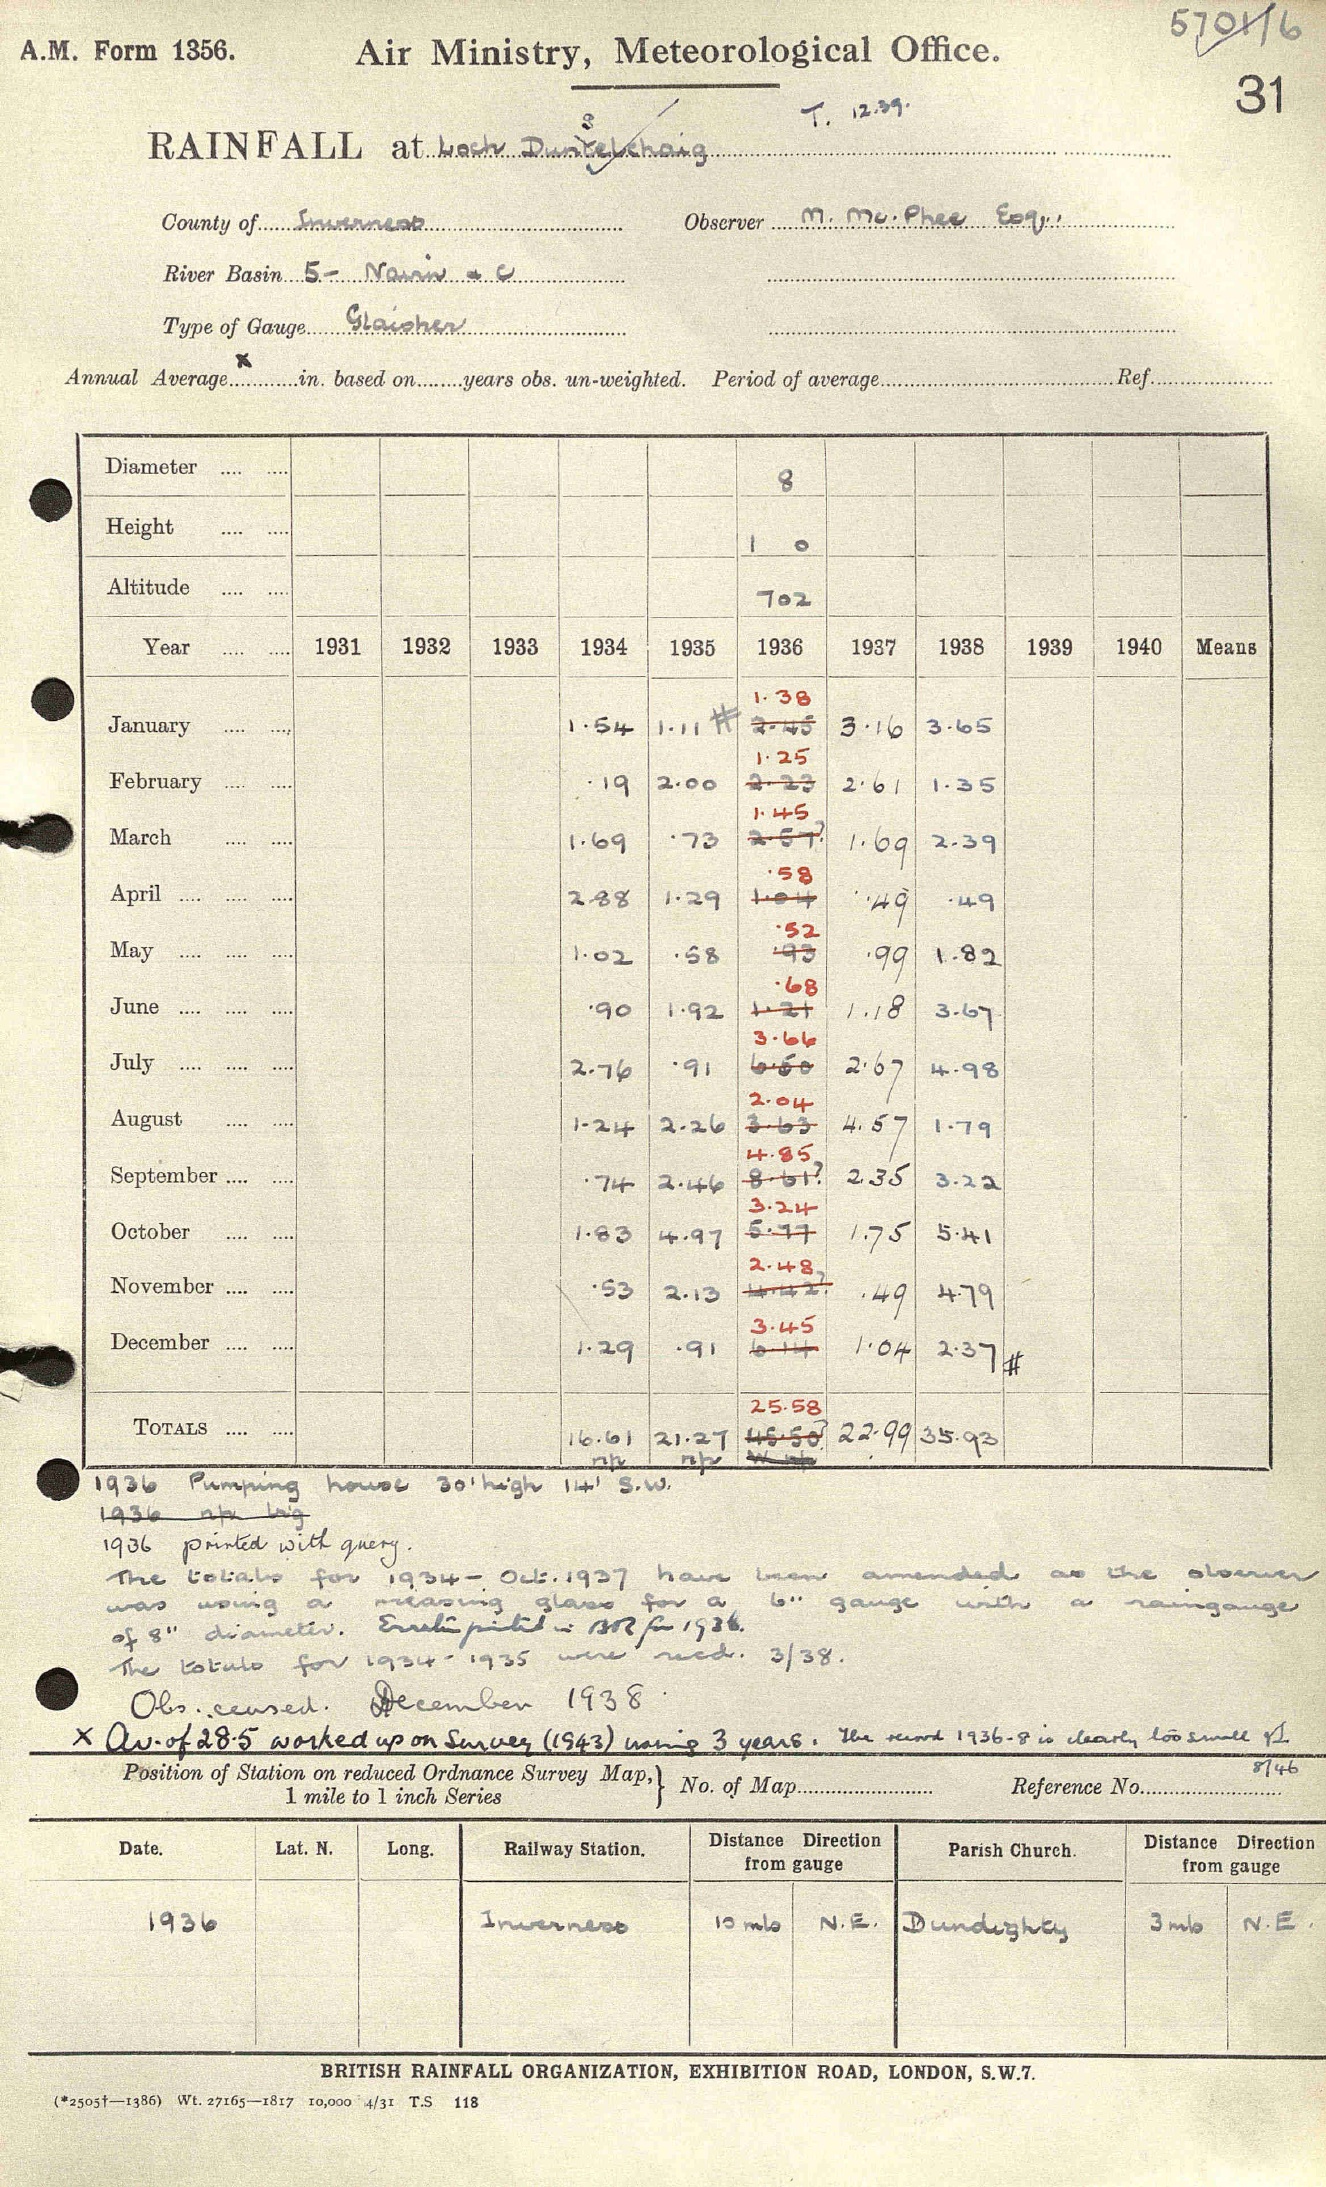 5701/6
A.M. Form 1356. Air Ministry, Meteorological Office.
31
T. 12.39.
s
RAINFALL at Loch Duntelchaig
County of Inverness Observer M. Mc.Phee Esq.,
River Basin 5- Nairn & C
Type of Gauge Glaisher
Annual Average x in. based on years obs. un-weighted. Period of average Ref.
Diameter 8
Height 1 0
Altitude 702
Year 1931 1932 1933 1934 1935 1936 1937 1938 1939 1940 Means
1.38
January 1.54 1.11 # 2.45 3.16 3.65
1.25
February .19 2.00 2.23 2.61 1.35
1.45
March 1.69 .73 2.57? 1.69 2.39
.58
April 2.88 1.29 1.04 .49 .49
.52
May 1.02 .58 .93 .99 1.82
.68
June .90 1.92 1.21 1.18 3.67
3.66
July 2.76 .91 6.50 2.67 4.98
2.04
August 1.24 2.26 3.63 4.57 1.79
4.85
September .74 2.46 8.61? 2.35 3.22
3.24
October 1.83 4.97 5.77 1.75 5.41
2.48
November .53 2.13 4.42? .49 4.79
3.45
December 1.29 .91 6.14 1.04 2.37 #
25.58
TOTALS 16.61 21.27 45.50? 22.99 35.93
np np np
1936 Pumping house 30' high 14' S.W.
1936 np
1936 printed with query.
The totals for 1934 - Oct. 1937 have been amended as the observer
was using a measing glass for a 6" gauge with a raingauge
of 8" diameter. Erratum printed in BR for 1936.
The totals for 1934 - 1935 were recd. 3/38.
Obs. ceased. December 1938.
x Av. of 28.5 worked up on Survey (1943) using 3 years. The record 1936-8 is clearly too small
8/46
Position of Station on reduced Ordnance Survey Map, } No. of Map Reference No.
1 mile to 1 inch Series
Date. Lat. N. Long. Railway Station. Distance Direction from gauge Parish Church. Distance Direction from gauge
1936 Inverness 10 mls N.E. Dundighty 3 mls N.E.
BRITISH RAINFALL ORGANIZATION, EXHIBITION ROAD, LONDON, S.W.7.
(*2505†—1386) Wt. 27165—1817 10,000 4/31 T.S 118